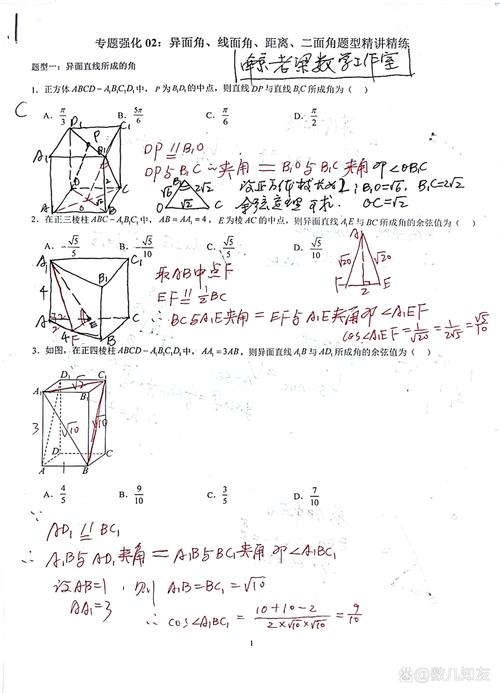 专题强化 02：异面角、线面角、距离、二面角题型精讲精练
题型一：异面直线所成的角
老梁数学工作室
1．正方体 ABCD－A₁B₁C₁D₁中，P为B₁D₁的中点，则直线DP与直线B₁C所成角为（ ）
C
A．π/3 B．5π/6 C．π/6 D．π/2
D₁ C₁ P A₁ B₁ D C A O B √2
DP∥B₁O
DP与B₁C∴夹角＝B₁O与B₁C夹角即∠OB₁C
B₁ √6 2√2 O √2 C
设正方体棱长为2；B₁O=√6，B₁C=2√2
余弦定理 OC=√2
2．在正三棱柱 ABC－A₁B₁C₁中，AB＝AA₁＝4，E为棱AC的中点，则异面直线A₁E与BC所成角的余弦值为（ ）
A．－√5/5 B．－√5/10 C．√5/5 D．√5/10
A₁ C₁ B₁ 4 A E C F 4 B
取AB中点F
EF∥½BC
∴BC与A₁E夹角＝EF与A₁E夹角即∠A₁EF
A₁ √20 √20 F 2 E
cos∠A₁EF=1/√20=1/2√5=√5/10
3．如图，在正四棱柱ABCD－A₁B₁C₁D₁中，AA₁＝3AB，则异面直线A₁B与AD₁所成角的余弦值为（ ）
D₁ C₁ √2 A₁ B₁ 3 √10 √10 D C A 1 B
A．4/5 B．9/10 C．3/5 D．7/10
∵AD₁∥BC₁
∴A₁B与AD₁夹角＝A₁B与BC₁夹角即∠A₁BC₁
设AB=1，则A₁B=BC₁=√10
AA₁=3
∴cos∠A₁BC₁=(10+10-2)/(2×√10×√10)=9/10
1
@数几知友